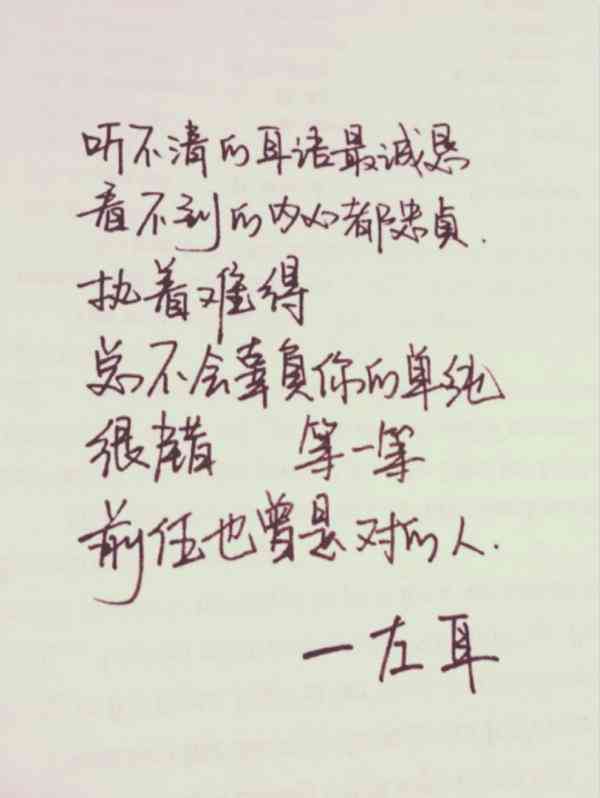 听不清的耳语最诚恳
看不到的内心都忠貞.
执着难得
总不会辜負你的单纯
很 等一等
前任也曾是对的人.
一左耳